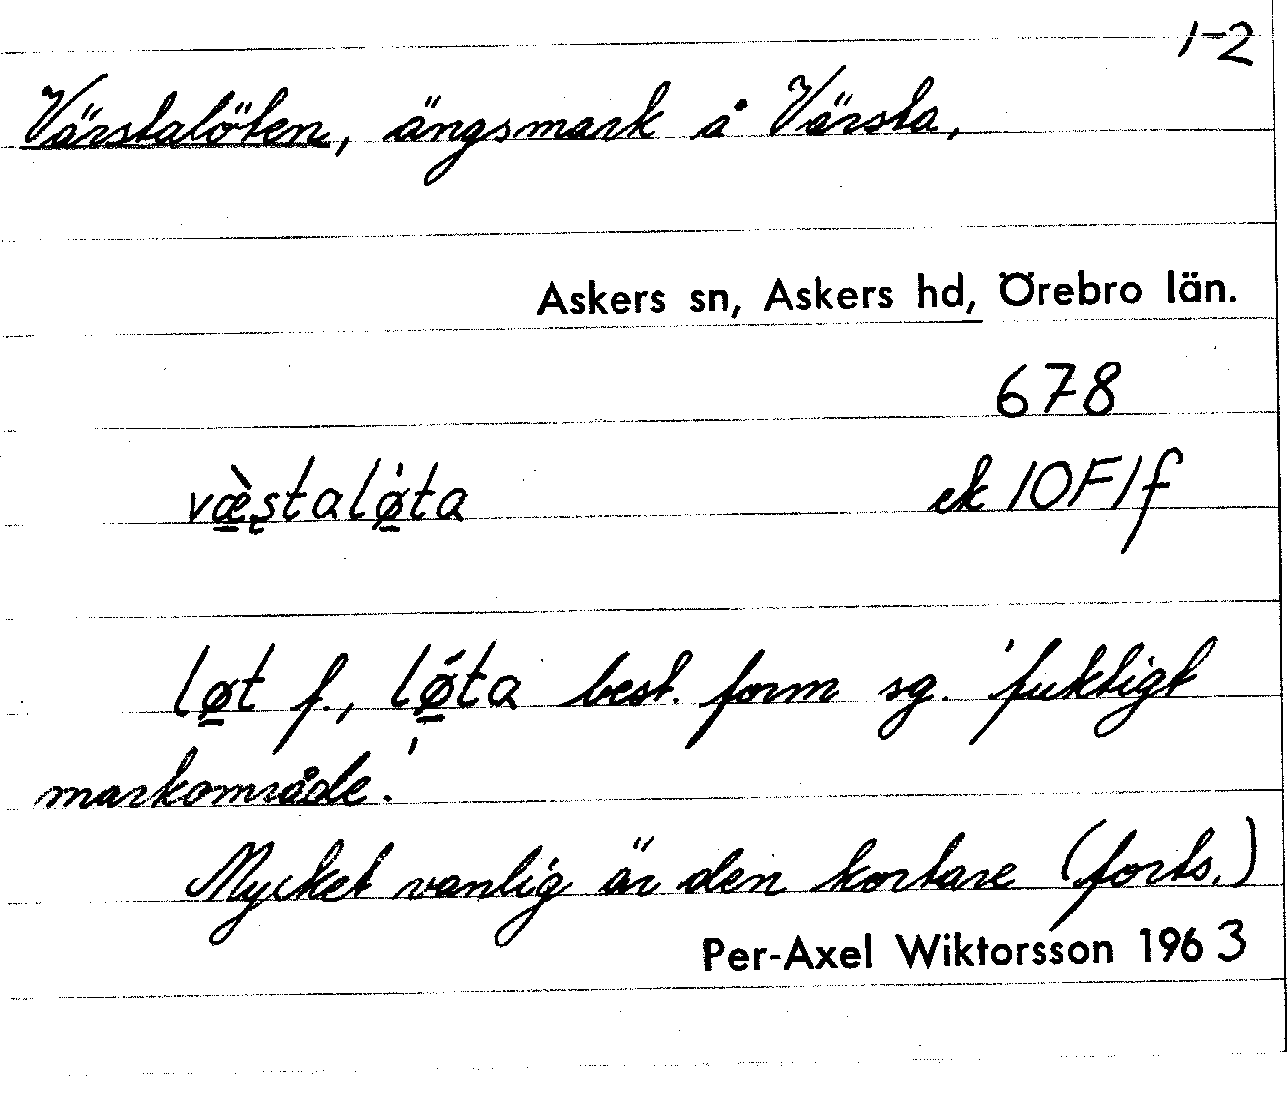 1-2
Värstalöten, ängsmark å Värsta,
Askers sn, Askers hd, Örebro län.
678
væ̱̀ʂtalø̱̍ta ek 10F1f
lø̱t f., lǿ̱ta best. form sg. 'fuktigt
markområde.'
Mycket vanlig är den kortare (forts.)
Per-Axel Wiktorsson 1963